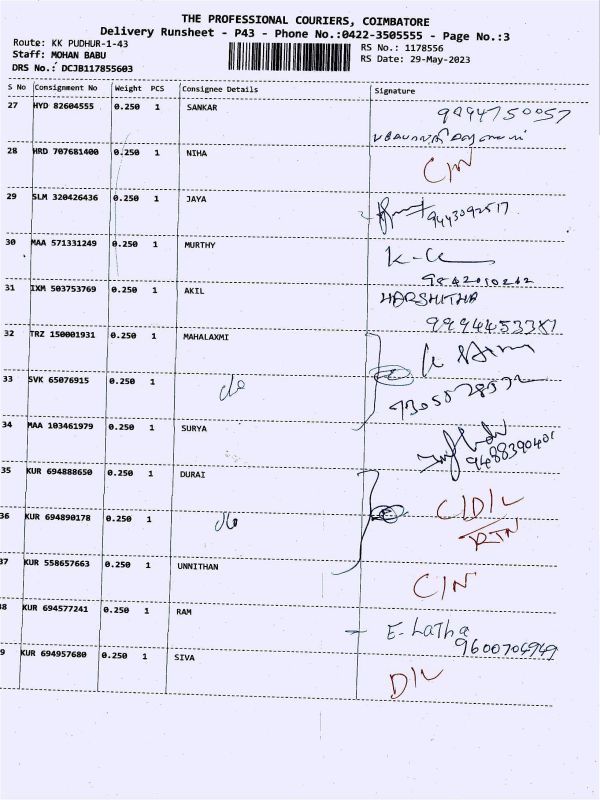 THE PROFESSIONAL COURIERS, COIMBATORE
Delivery Runsheet - P43 - Phone No.:0422-3505555 - Page No.:3
Route: KK PUDHUR-1-43
RS No.: 1178556
Staff: MOHAN BABU
RS Date: 29-May-2023
DRS No.: DCJB117855603
S No Consignment No Weight PCS Consignee Details Signature
27 HYD 82604555 0.250 1 SANKAR 9894750057
28 HRD 707681400 0.250 1 NIHA C/N
29 SLM 320426436 0.250 1 JAYA 9443092517
30 MAA 571331249 0.250 1 MURTHY
31 IXM 503753769 0.250 1 AKIL HARSHITHA
9994453381
32 TRZ 150001931 0.250 1 MAHALAXMI
33 SVK 65076915 0.250 1 do
34 MAA 103461979 0.250 1 SURYA 9488390401
35 KUR 694888650 0.250 1 DURAI C/D/L
RTN
36 KUR 694890178 0.250 1 do
37 KUR 558657663 0.250 1 UNNITHAN C/N
38 KUR 694577241 0.250 1 RAM E. Latha
9600704949
9 KUR 694957680 0.250 1 SIVA D/L